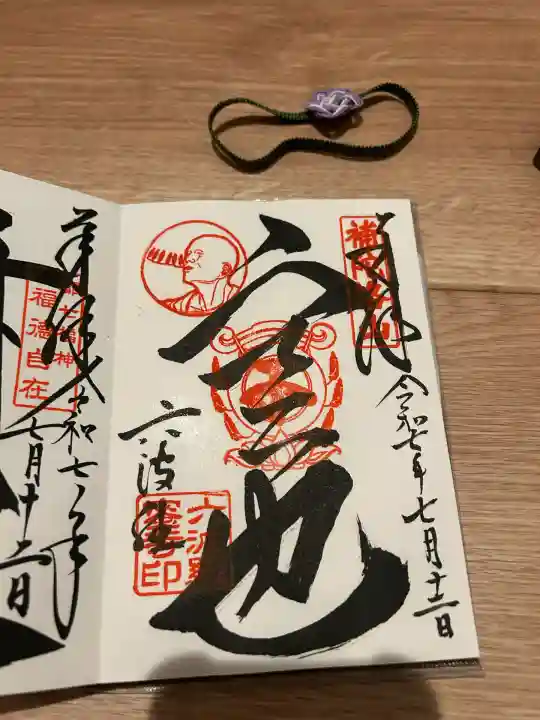 奉拝
令和七年七月十二日
空也
六波羅
六波羅
蜜寺印
奉拝
令和七年
七月十二日
七福神
福徳自在